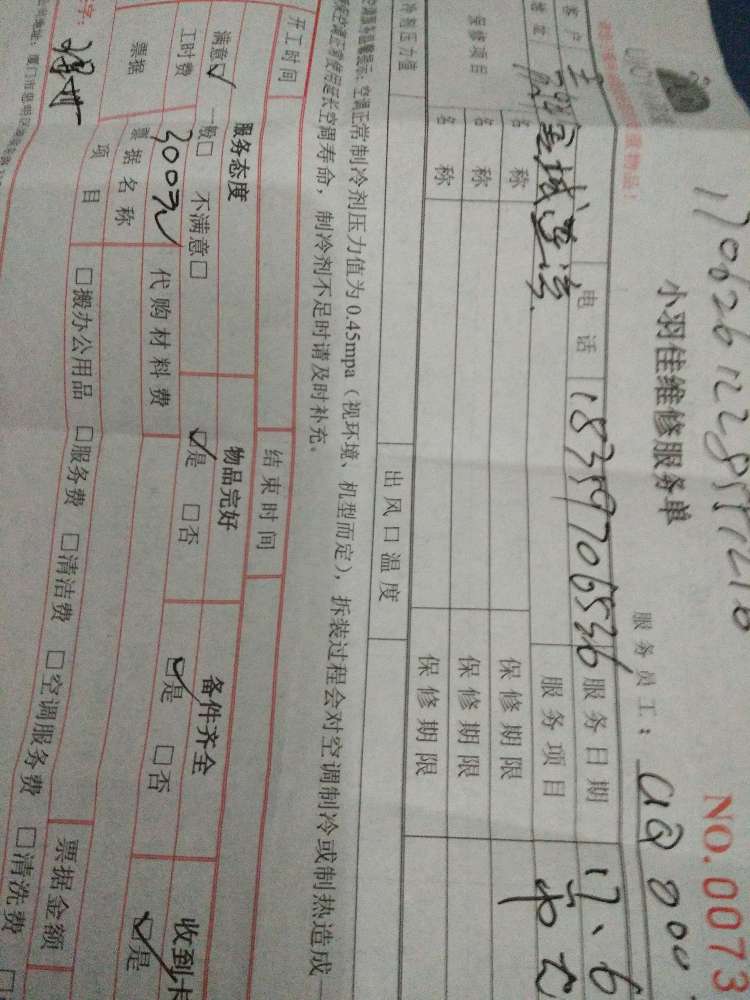 1706261228591210
小羽佳维修服务单
NO.0073
服务员工:
客户
电话
18359706536
服务日期
17.6
金域
服务项目
名称
保修期限
保修项目
名称
保修期限
名称
保修期限
冷剂压力值
出风口温度
空调正常制冷剂压力值为0.45mpa(视环境、机型而定),拆装过程会对空调制冷或制热造成一
延长空调寿命,制冷剂不足时请及时补充。
开工时间
结束时间
服务态度
物品完好
备件齐全
收到卡
满意☑ 一般□ 不满意□
☑是 □否
☑是 □否
☑是
工时费
300元
代购材料费
票据
票据名称
票据金额
项目
□搬办公用品 □服务费 □清洁费 □空调服务费 □清洗费
字:
地址:厦门市思明区